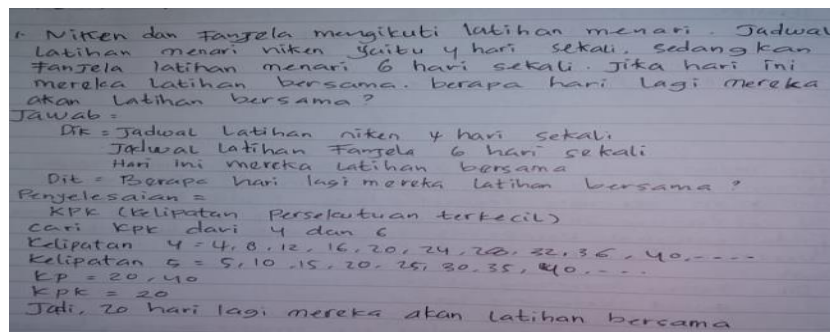 1. Niken dan Fanjela mengikuti latihan menari. Jadwal
Latihan menari niken yaitu 4 hari sekali. sedangkan
Fanjela latihan menari 6 hari sekali. Jika hari ini
mereka Latihan bersama. berapa hari Lagi mereka
akan Latihan bersama?
Jawab =
Dik = Jadwal Latihan niken 4 hari sekali.
Jadwal Latihan Fanjela 6 hari sekali
Hari ini mereka Latihan bersama
Dit = Berapa hari lagi mereka Latihan bersama ?
Penyelesaian =
KPK (kelipatan Persekutuan terkecil)
cari KPK dari 4 dan 6
Kelipatan 4 = 4, 8, 12, 16, 20, 24, 28, 32, 36, 40,----
Kelipatan 5 = 5, 10, 15, 20, 25, 30, 35, 40,----
KP = 20, 40
KPK = 20
Jadi, 20 hari lagi mereka akan Latihan bersama